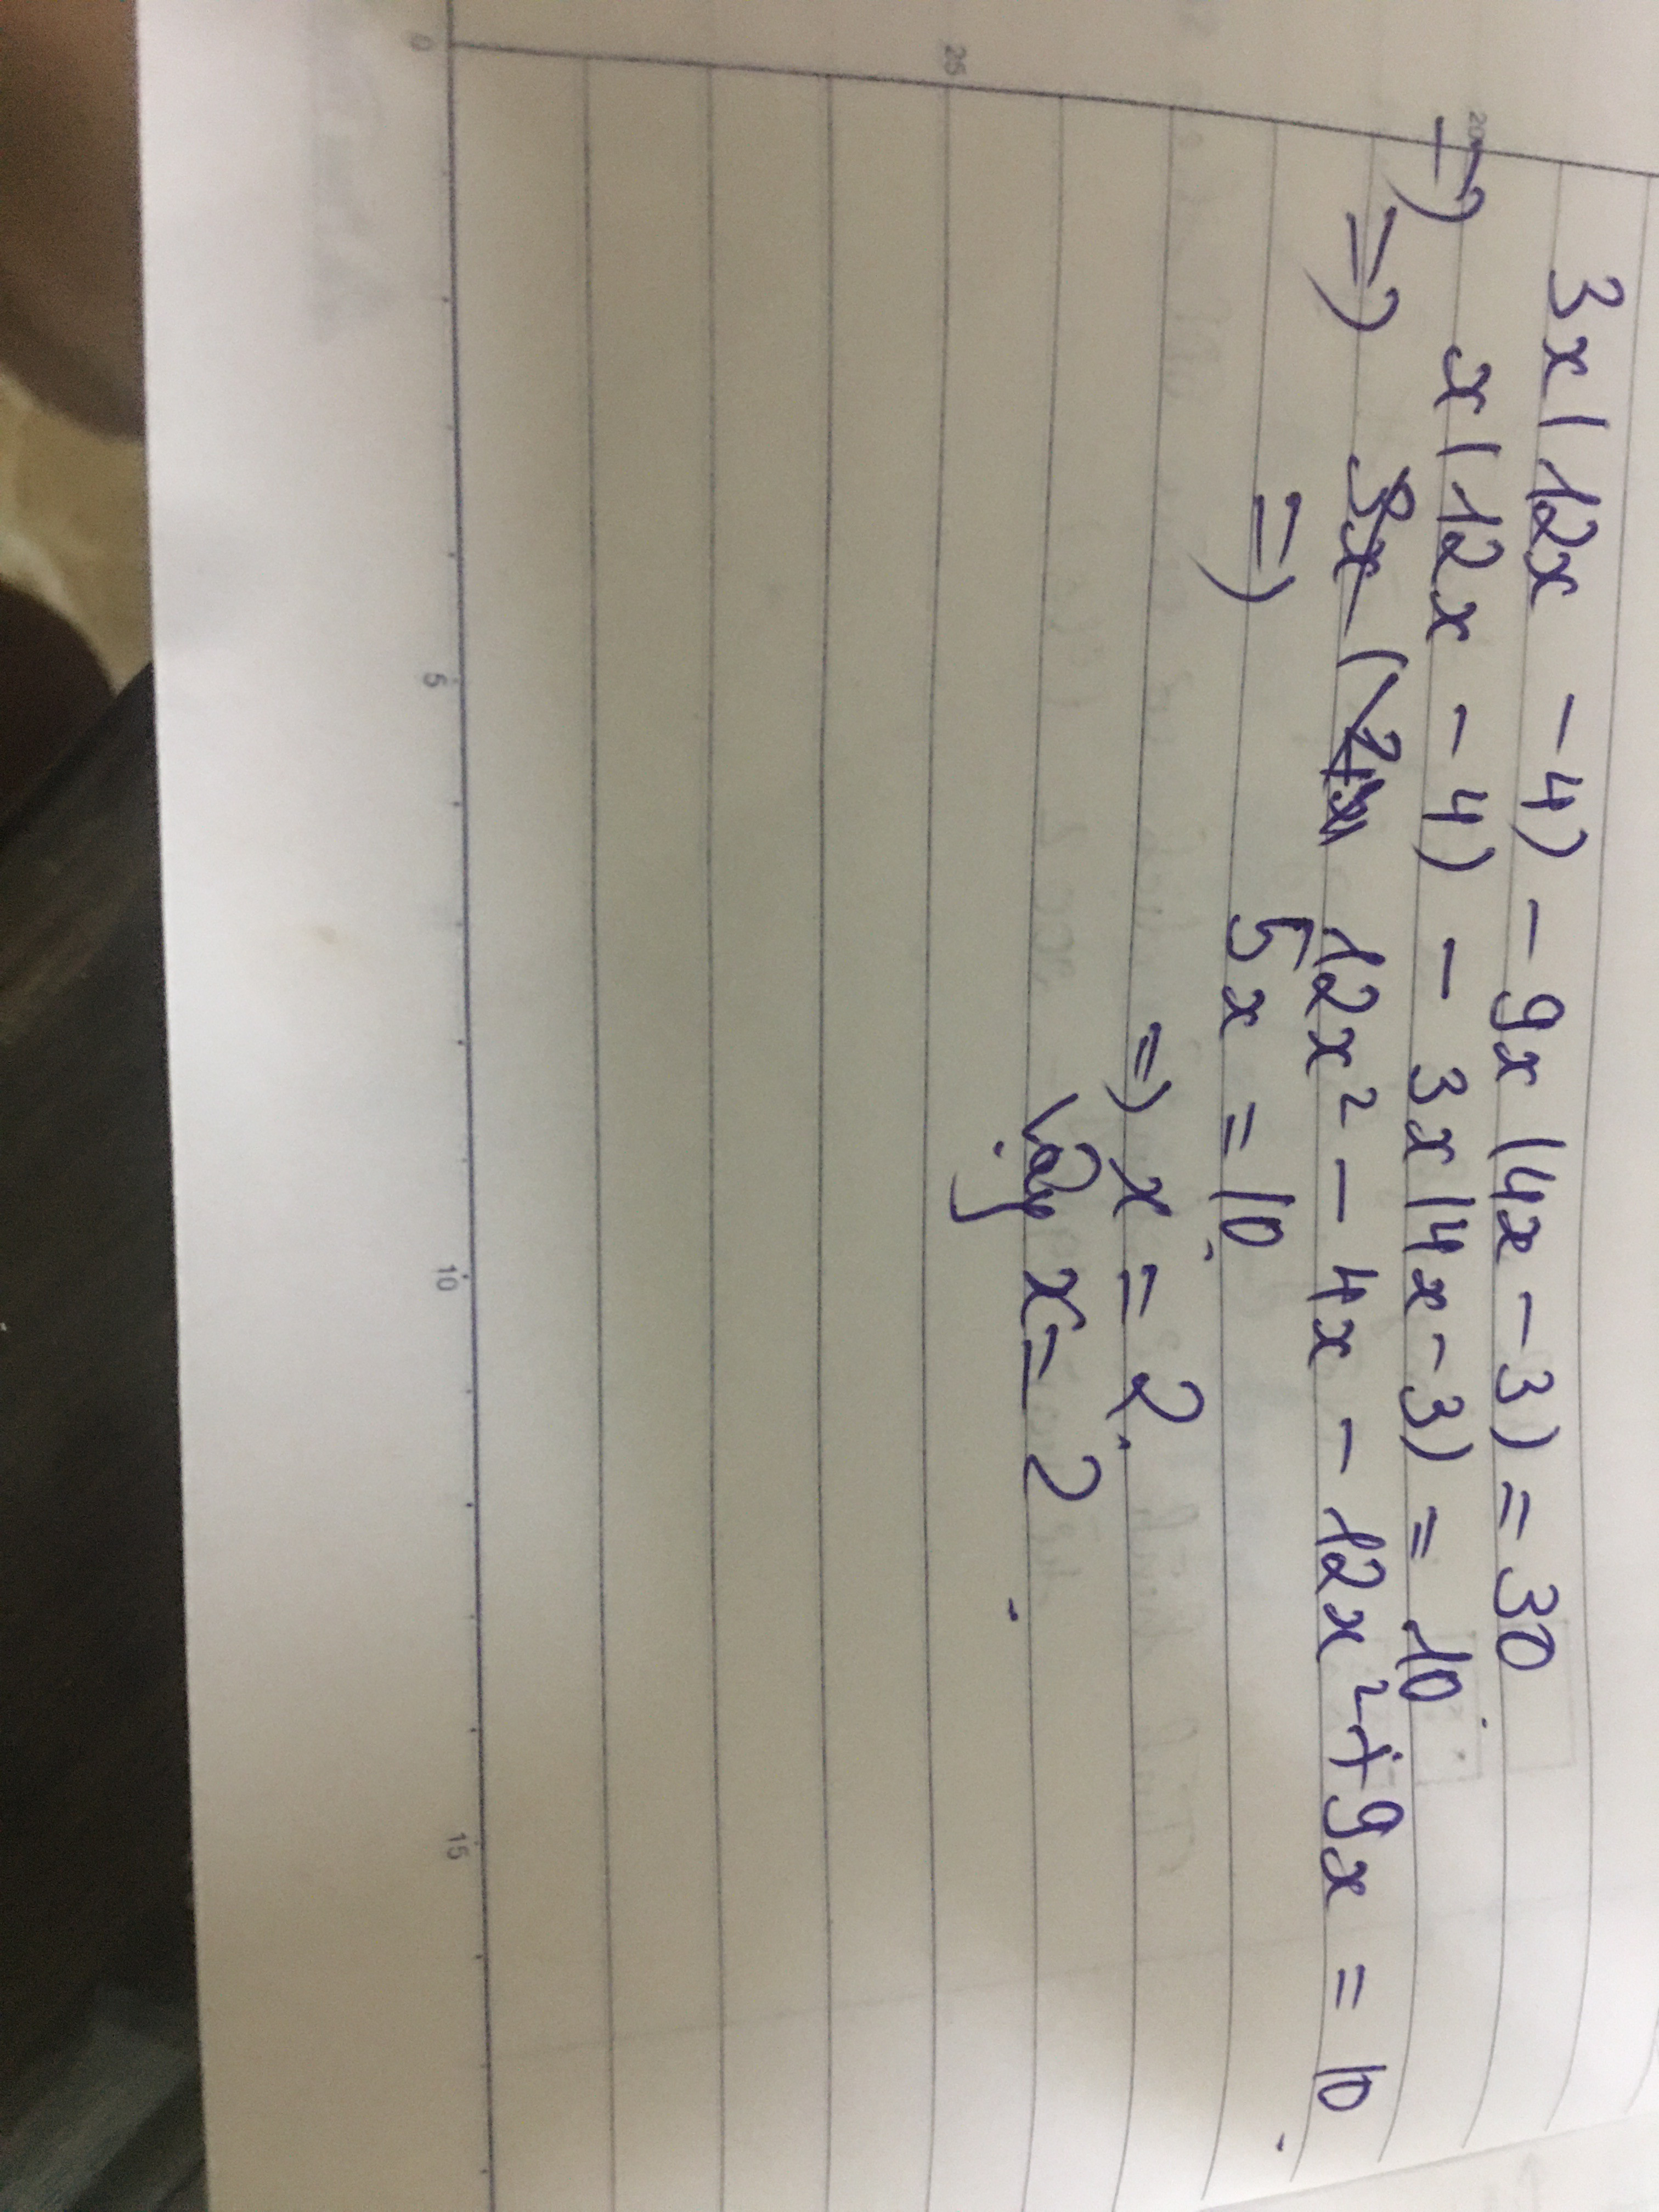 3x(12x - 4) - 9x(4x - 3) = 30
=) x(12x - 4) - 3x(4x - 3) = 10.
=) 12x² - 4x - 12x² + 9x = 10.
=) 5x = 10.
=) x = 2.
Vậy x = 2.
0 5 10 15
20
25